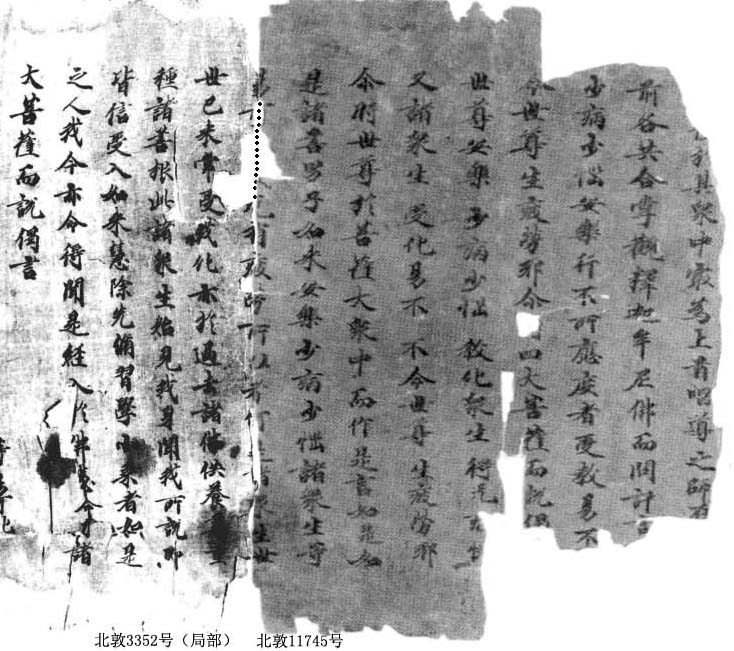 其衆中寂為上首唱導之師在
前各共合掌觀釋迦牟尼佛而問訊言
少病少惱安樂行不所應度者受教易不
令世尊生疲勞耶尒四大菩薩而說偈
世尊安樂 少病少惱 教化衆生 得无
又諸衆生 受化易不 不令世尊 生疲勞耶
尒時世尊於菩薩大衆中而作是言如是如
是諸善男子如來安樂少病少惱諸衆生等
易 无有疲勞所以者何是諸衆生世
世已來常受我化亦於過去諸佛供養尊重
種諸善根此諸衆生始見我身聞我所說即
皆信受入如來慧除先脩習學小乘者如是
之人我今亦令得聞是經入於佛慧尒時諸
大菩薩而說偈言
北敦3352号（局部） 北敦11745号